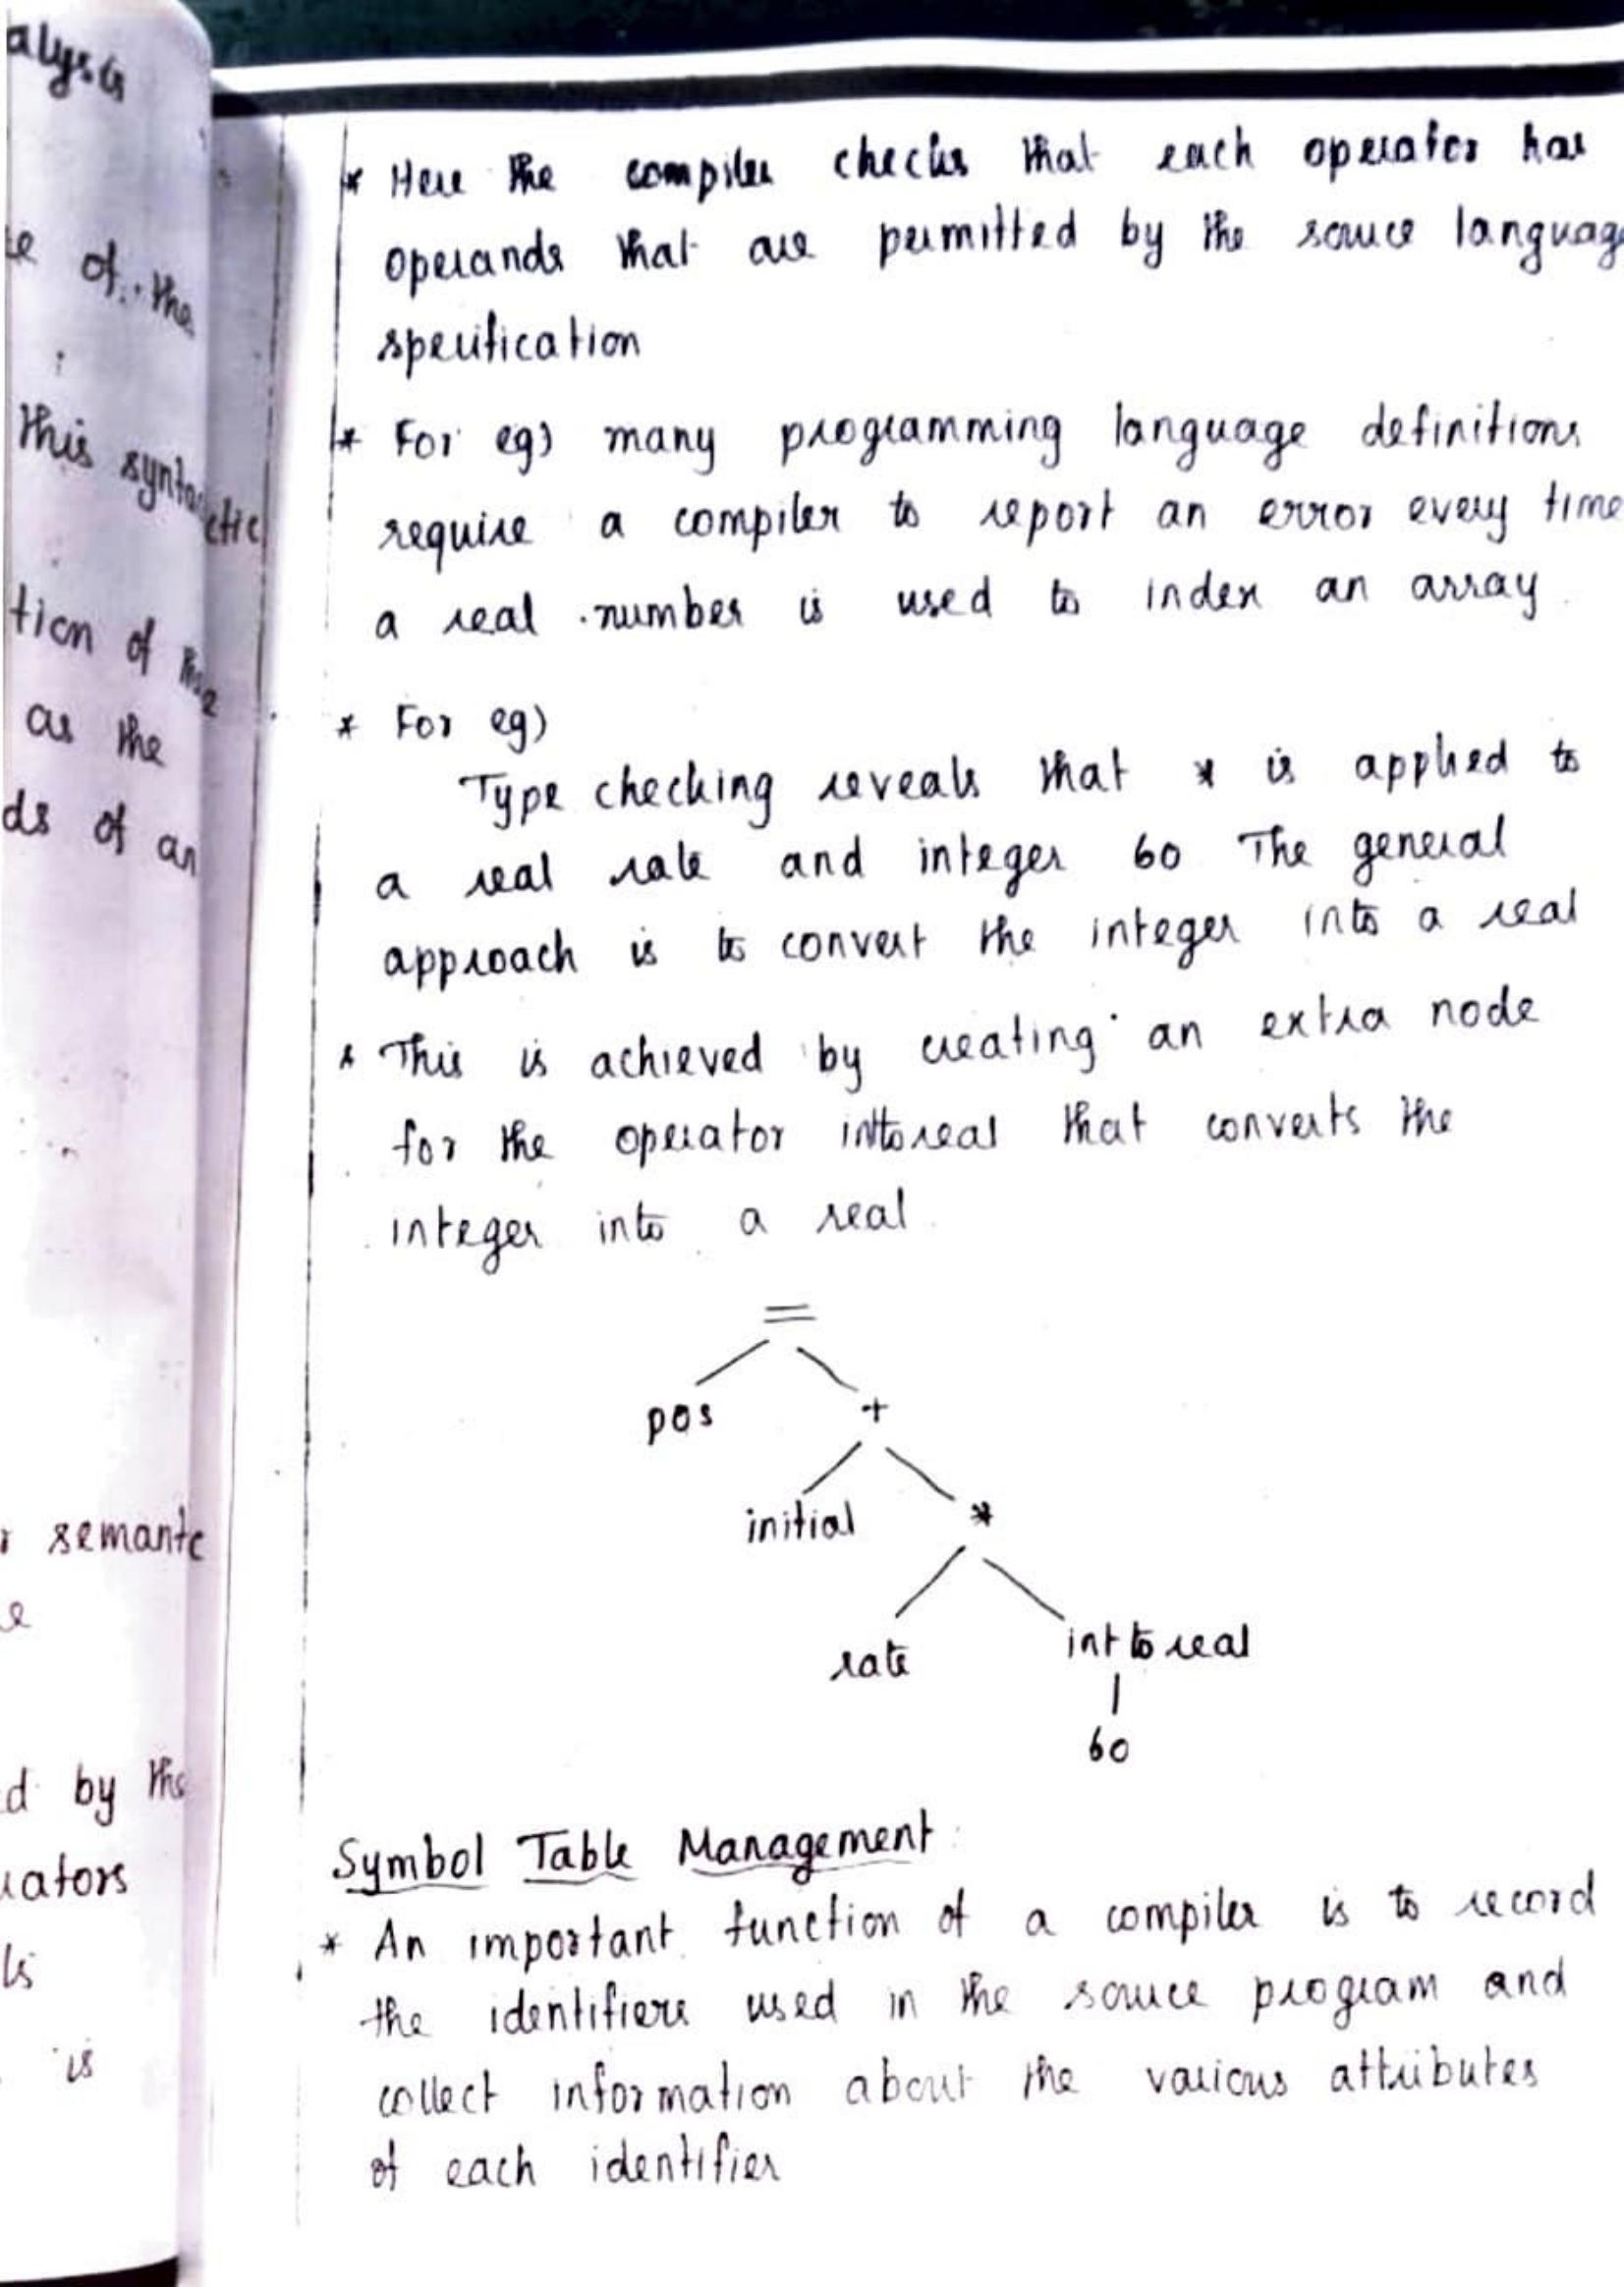 alysis
of the
this syntactic
tion of
as the
ds of an
semantc
d by the
is
* Here the compiler checks that each operator has
operands that are permitted by the source language
specification
* For eg) many programming language definitions
require a compiler to report an error every time
a real number is used to index an array
* For eg)
Type checking reveals that * is applied to
a real rate and integer 60 The general
approach is to convert the integer into a real
* This is achieved by creating an extra node
for the operator inttoreal that converts the
integer into a real
=
pos +
initial *
rate int to real
60
Symbol Table Management
* An important function of a compiler is to record
the identifiers used in the source program and
collect information about the various attributes
of each identifier